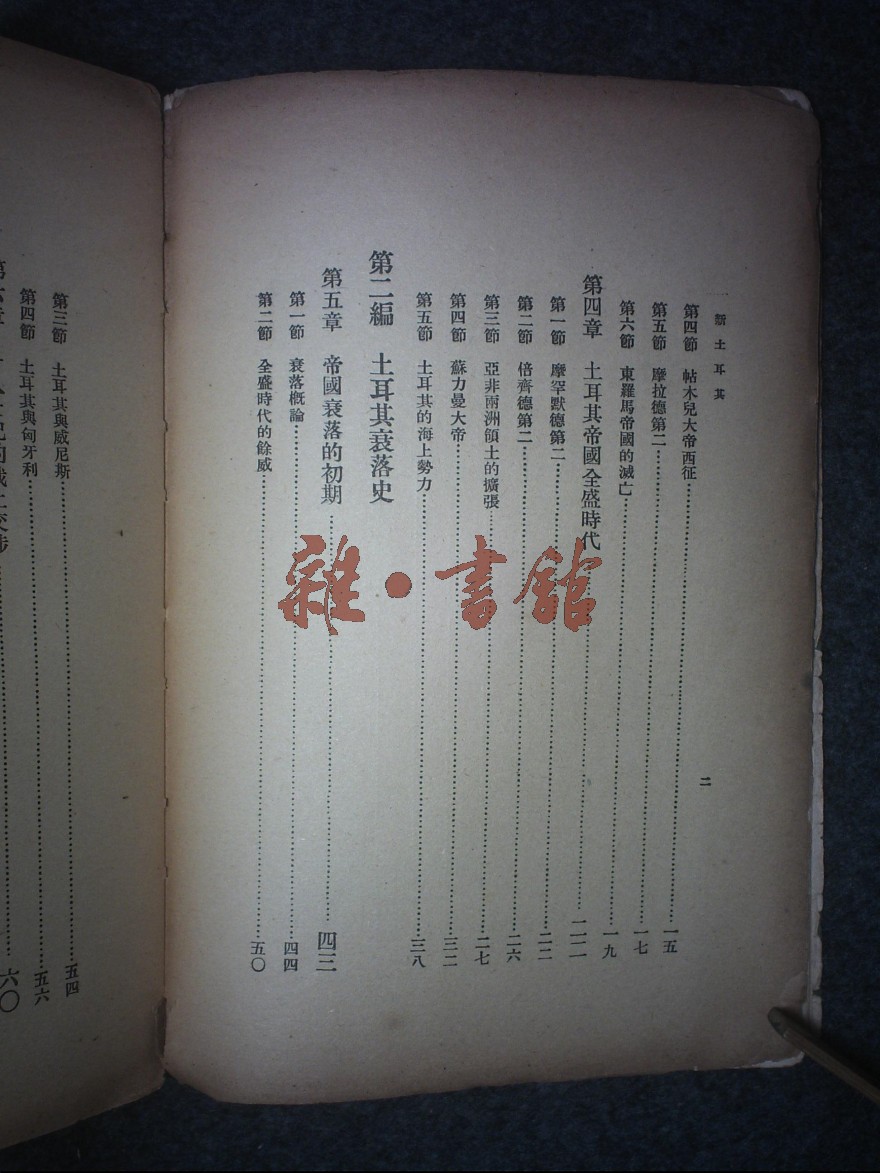 新土耳其
二
第四節 帖木兒大帝西征 一五
第五節 摩拉德第二 一七
第六節 東羅馬帝國的滅亡 一九
第四章 土耳其帝國全盛時代 二二
第一節 摩罕默德第二 二二
第二節 倍齊德第二 二六
第三節 亞非兩洲領土的擴張 二七
第四節 蘇力曼大帝 三二
第五節 土耳其的海上勢力 三八
第二編 土耳其衰落史
第五章 帝國衰落的初期 四三
第一節 衰落概論 四四
第二節 全盛時代的餘威 五〇
第三節 土耳其與威尼斯 五四
第四節 土耳其與匈牙利 五六
六〇
雜·書館